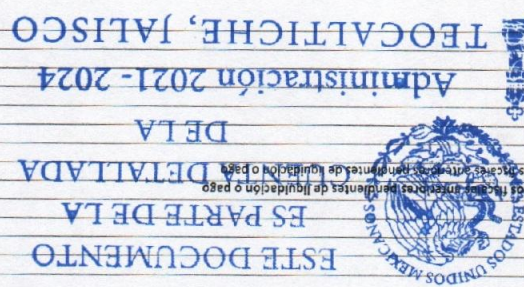 ESTE DOCUMENTO
ES PARTE DE LA
DETALLADA
DE LA
Administración 2021 - 2024
TEOCALTICHE, JALISCO
ESTADOS UNIDOS MEXICANOS
os fiscales anteriores pendientes de liquidación o pago
s fiscales anteriores pendientes de liquidación o pago